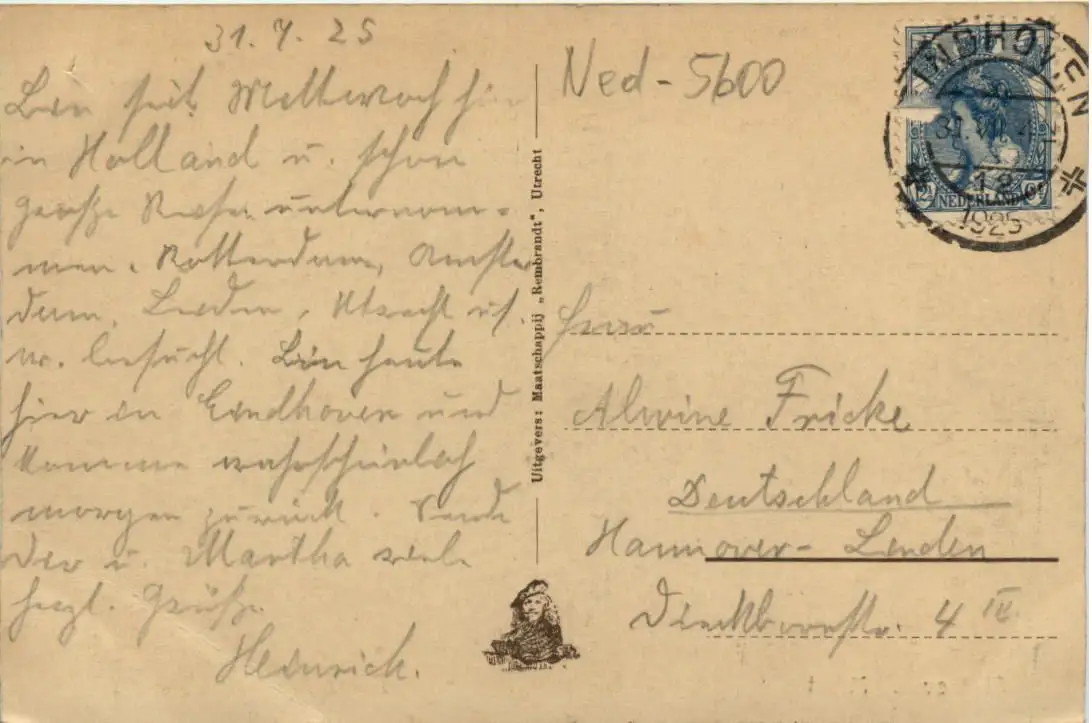 31.7.25
Bin seit Mittwoch hier
in Holland u. schon
große Reise unternom-
men. Rotterdam, Amster
dam, Leiden, Utrecht usf.
besucht. Bin heute
hier in Eindhoven und
komme wahrscheinlich
morgen zurück. Sende
Dir u. Martha viele
herzl. Grüße
Heinrich.
Ned-5600
Uitgevers: Maatschappij „Rembrandt“, Utrecht
EINDHOVEN
31.VII
12
1925
12½ Ct
NEDERLAND
Frau
Alwine Fricke
Deutschland
Hannover-Linden
4 IV